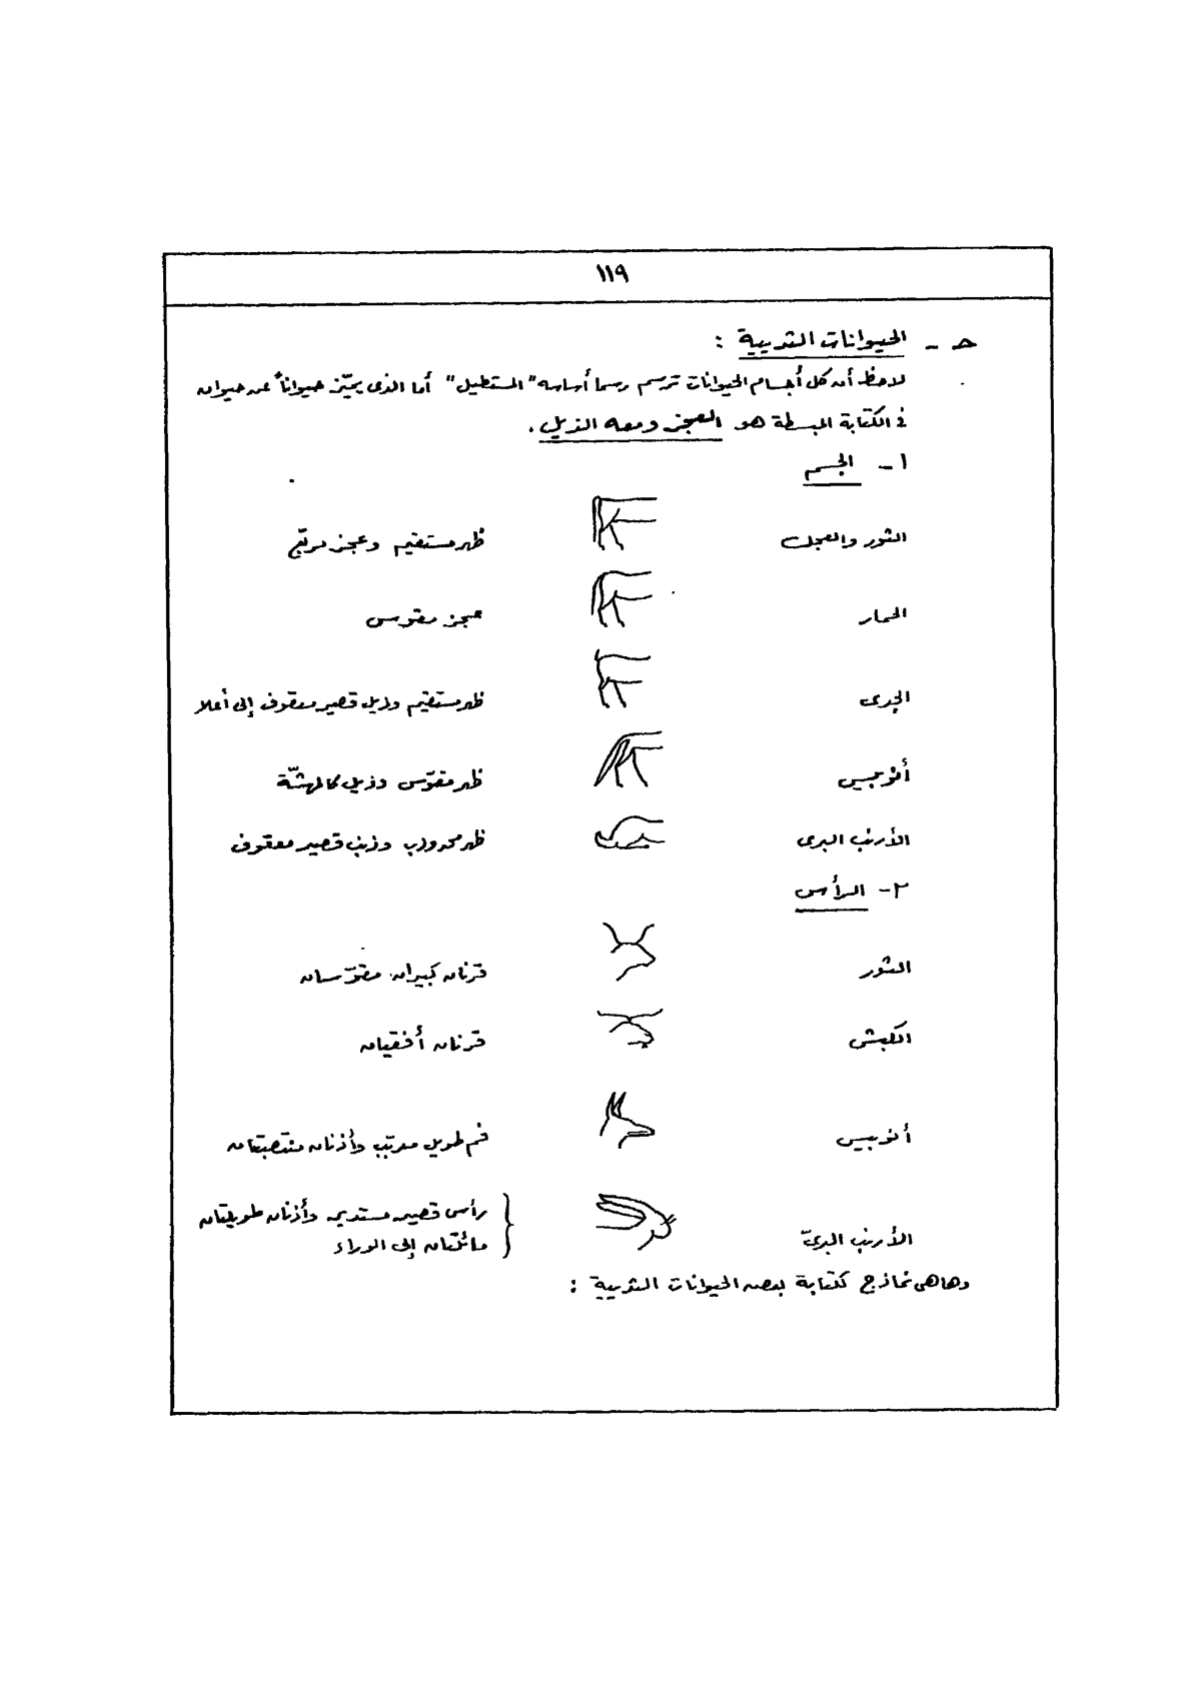 ١١٩
حـ - الحيوانات الثديية :
لاحظ أن كل أجسام الحيوانات ترسم رسما أساسه "المستطيل" أما الذى يميّز حيواناً عن حيوان
فى الكتابة المبسطة هو العجز ومعه الذيل .
١ - الجسم
الثور والعجل ظهر مستقيم وعجز مربّع
الحمار عجز مقوس
الجدى ظهر مستقيم وذيل قصير معقوف إلى أعلا
أنوبيس ظهر مقوّس وذيل كالمهشّة
الأرنب البرى ظهر محدودب وذنب قصير معقوف
٢ - الرأس
الثور قرنان كبيران مقوّسان
الكبش قرنان أفقيان
أنوبيس فم طويل مدبّب وأذنان منتصبتان
رأس قصير مستدير وأذنان طويلتان
الأرنب البرىّ مائلتان إلى الوراء
وهاهى نماذج كتابة بعض الحيوانات الثديية :